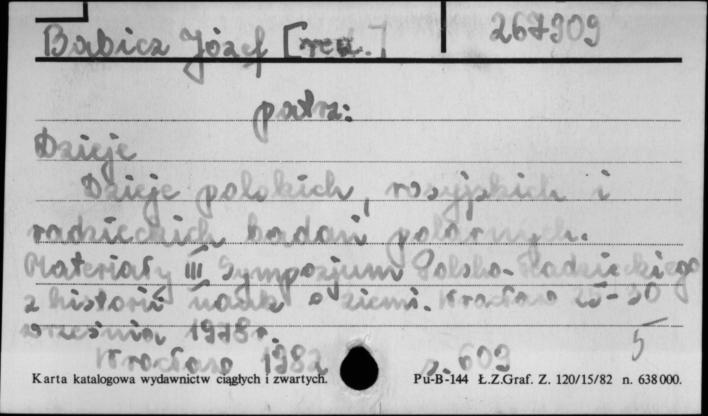 Babicz Józef [red.] 267909
patrz:
Dzieje
Dzieje polskich, rosyjskich i
radzieckich badań polarnych.
Materiały III Sympozjum Polsko-Radzieckiego
z historii nauk o ziemi. Wrocław 25-30
września 1978r.
Wrocław 1982 s. 609 5
Karta katalogowa wydawnictw ciągłych i zwartych. Pu-B-144 Ł.Z.Graf. Z. 120/15/82 n. 638000.